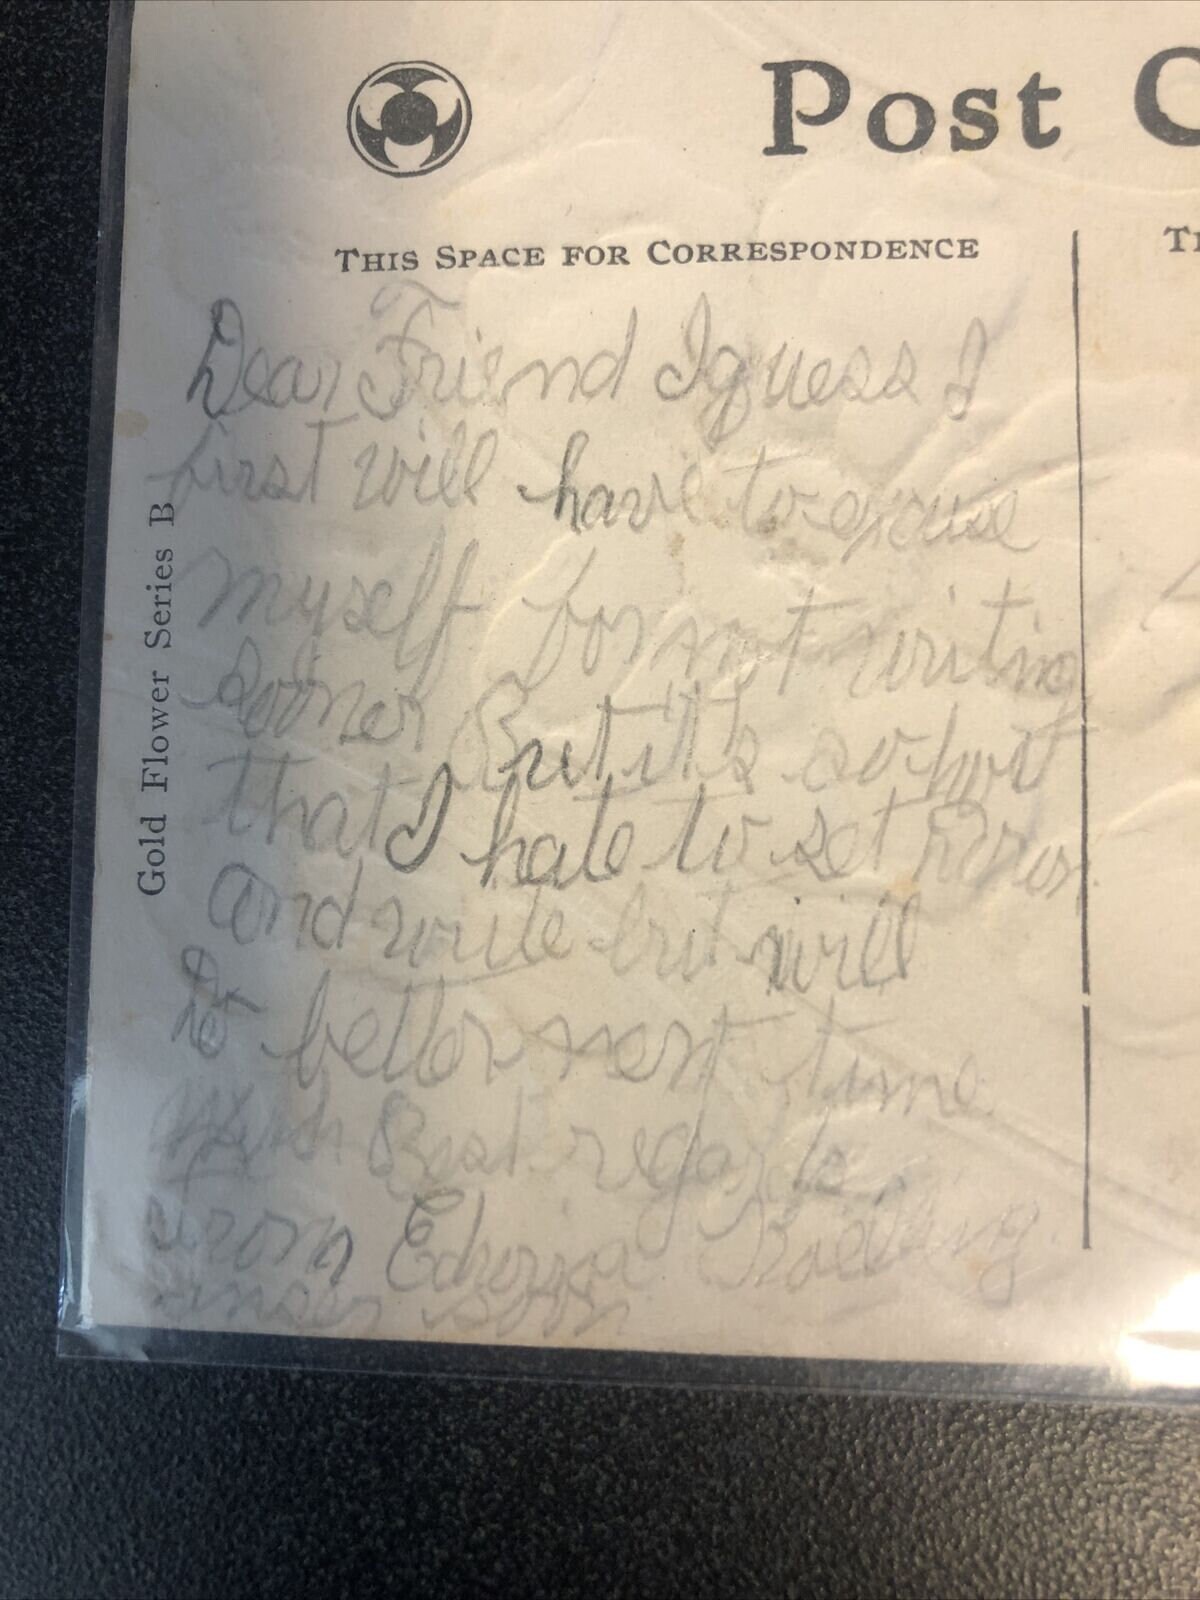 Post C
THIS SPACE FOR CORRESPONDENCE
Gold Flower Series B
Dear Friend I guess I
first will have to excuse
myself for not writing
sooner But it's so hot
that I hate to set down
and write but will
do better next time
with Best regards
from
answer soon